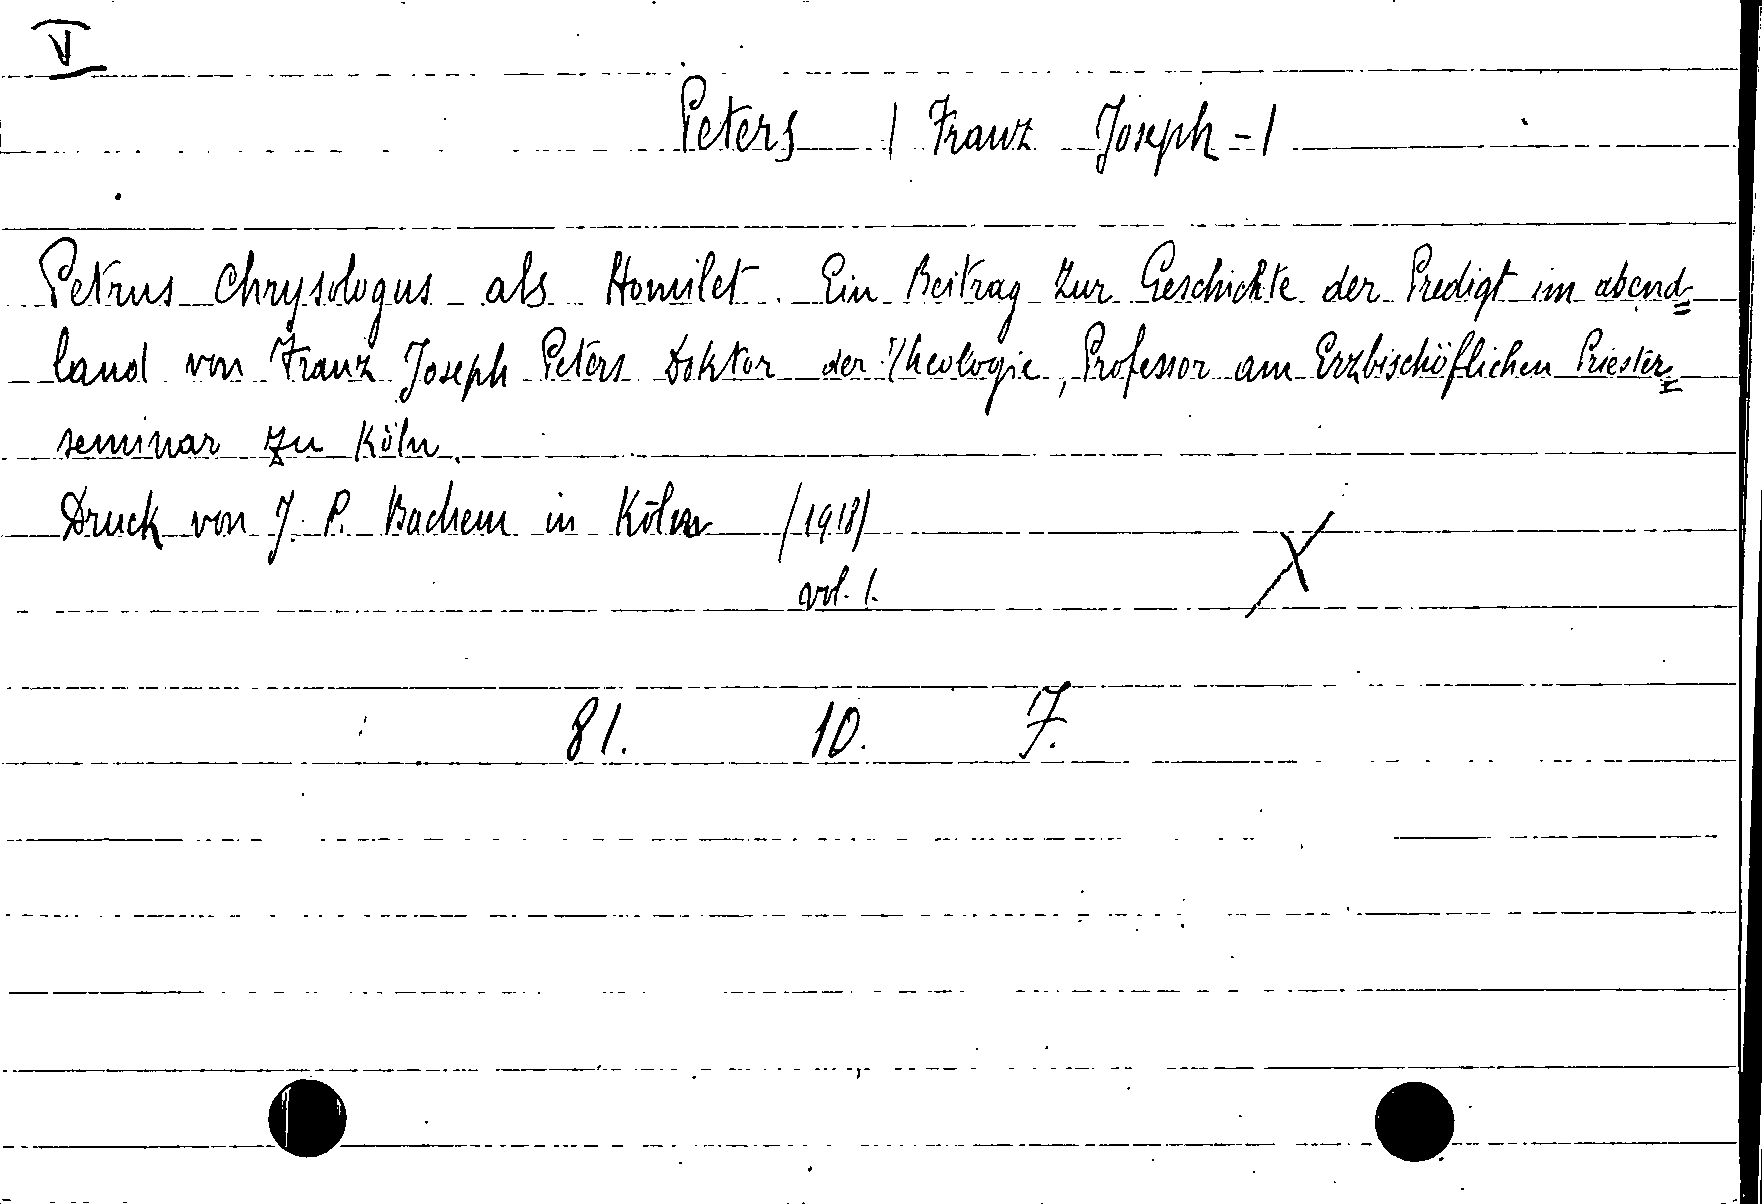 V
Peters / Franz Joseph - /
Petrus Chrysologus als Homilet. Ein Beitrag zur Geschichte der Predigt im abend=
land von Franz Joseph Peters Doktor der Theologie, Professor am Erzbischöflichen Priester=
seminar zu Köln.
Druck von J. P. Bachem in Köln /1918/
vol. 1.
X
81. 10. 7.